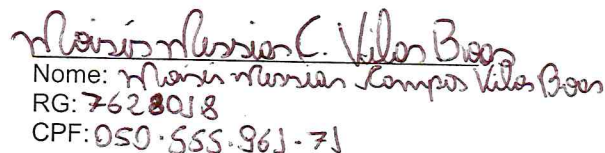 Moisés Messias C. Vilas Boas
Nome: Moisés Messias Kampos Vilas Boas
RG: 7628018
CPF: 050.555.961-71